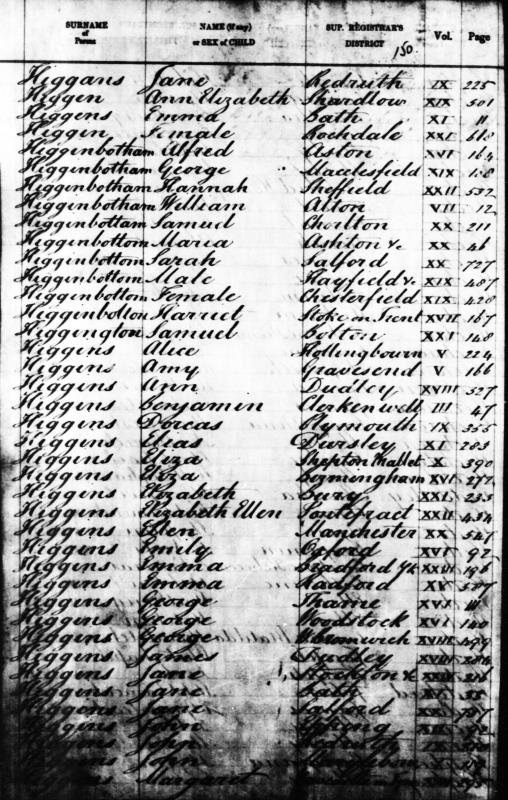 SURNAME of Parent NAME (if any) or SEX of CHILD SUP. REGISTRAR'S DISTRICT Vol. Page
150.
Higgans Jane Redruith IX 225
Higgen Ann Elizabeth Shardlow XIX 501
Higgens Emma Bath XI 11
Higgen Female Rochdale XXI 618
Higgenbotham Alfred Aston XVI 164
Higgenbotham George Macclesfield XIX 158
Higgenbotham Hannah Sheffield XXII 532
Higgenbotham William Alton VII 12
Higginbottam Samuel Chorlton XX 211
Higginbottom Maria Ashton &c XX 46
Higginbottom Sarah Salford XX 727
Higgenbottom Male Hayfield &c XIX 487
Higgenbottom Female Chesterfield XIX 428
Higgenbotton Harriet Stoke on Trent XVII 167
Higgington Samuel Bolton XXI 148
Higgens Alice Hollingbourn V 224
Higgens Amy Gravesend V 166
Higgens Ann Dudley XVIII 527
Higgens Benjamin Clerkenwell III 47
Higgens Dorcas Plymouth IX 355
Higgens Elias Dursley XI 283
Higgens Eliza Shepton Mallet X 390
Higgens Eliza Birmingham XVI 277
Higgens Elizabeth Bury XXI 235
Higgens Elizabeth Ellen Pontefract XXII 454
Higgens Ellen Manchester XX 547
Higgens Emily Oxford XVI 92
Higgens Emma Bradford Yk XXIII 196
Higgens Emma Radford XV 577
Higgens George Thame XVI 111
Higgens George Woodstock XVI 140
Higgens George W Bromwich XVIII 499
Higgens James Dudley XVIII
Higgens Jane Stockton &c
Higgens Jane Bath XI 35
Higgens Jane Salford XX 757
Higgens John
Higgens John Redruth IX
Higgens John
Higgens Margaret